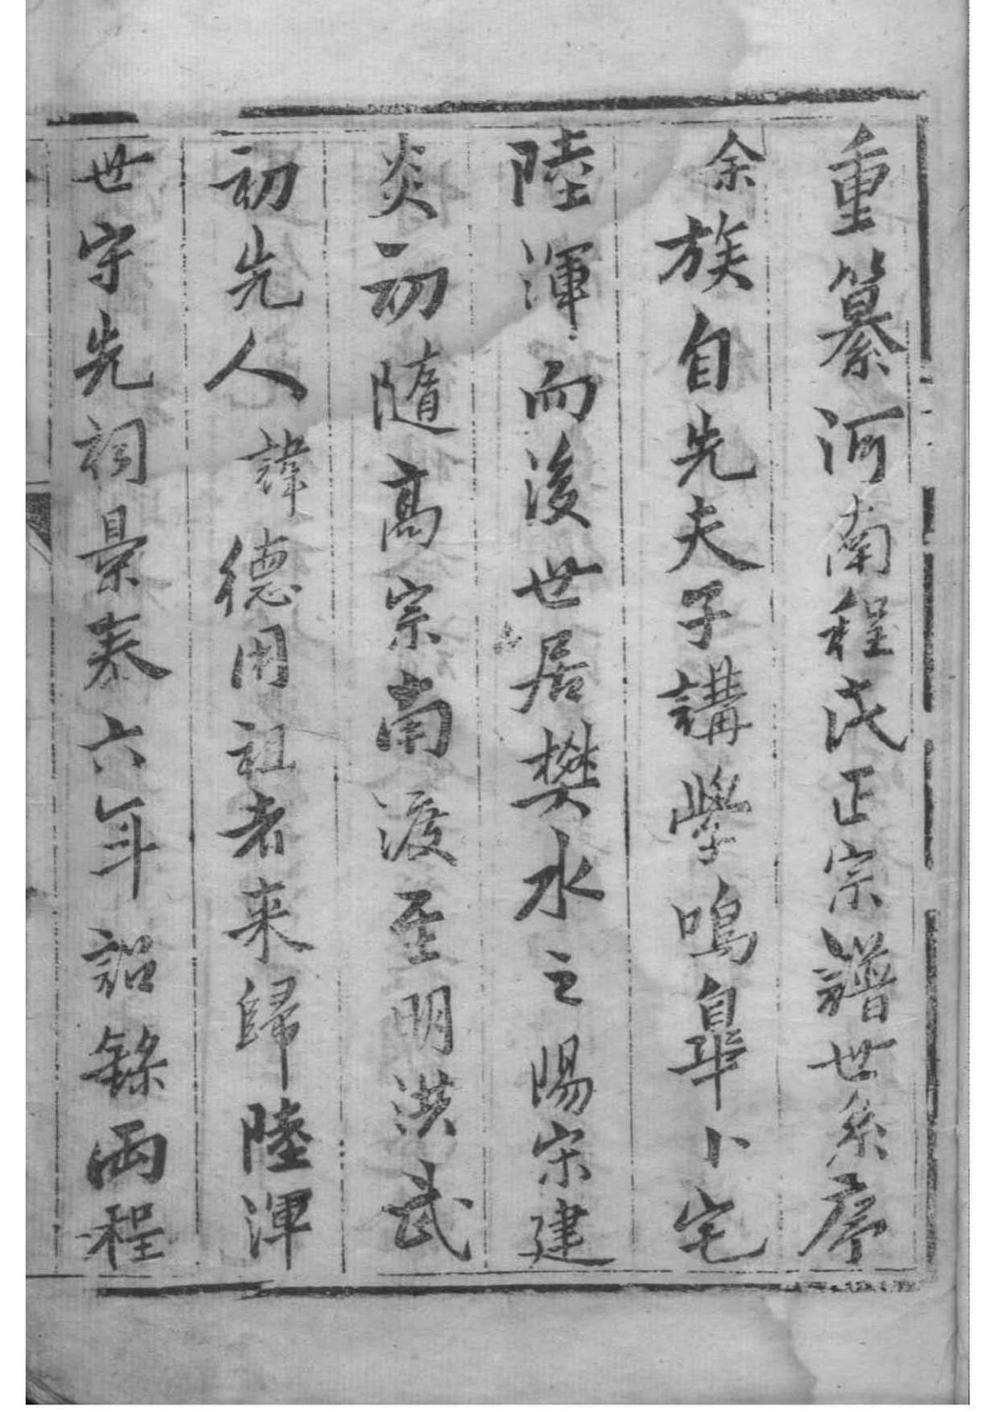 重纂河南程氏正宗譜世系序
余族自先夫子講學鳴臯卜宅
陸渾而後世居樊水之陽宋建
炎初隨高宗南渡至明洪武
初先人諱德用祖者来歸陸渾
世守先祠景泰六年詔錄兩程